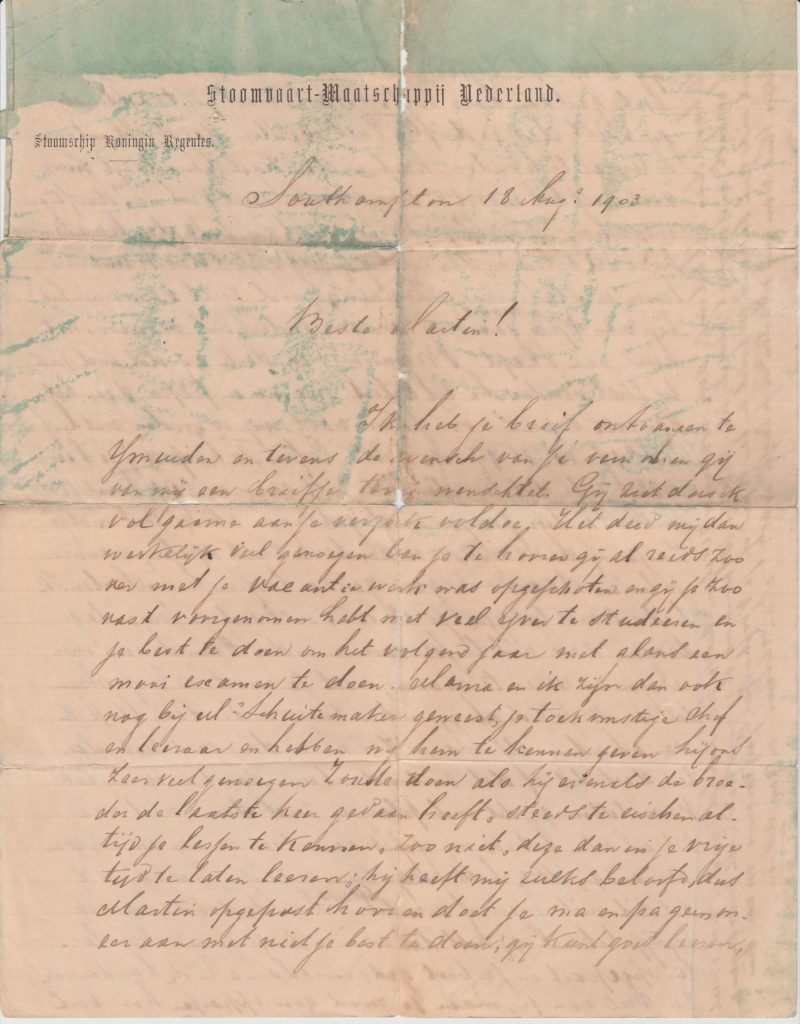 Stoomvaart-Maatschappij Nederland.
Stoomschip Koningin Regentes.
Southampton 18 Aug. 1903
Beste Martin!
Ik heb je brief ontvangen te
Ymuiden en tevens de wensch van je vernomen gij
van mij een briefje terug wenschtet. Gij ziet dus ik
vol gaarne aan je verzoek voldoe. Het deed mij dan
werkelijk veel genoegen van je te hooren gij al reeds zoo
ver met je vacantie werk was opgeschoten en gij je zoo
vast voorgenomen hebt met veel yver te studeeren en
je best te doen om het volgend jaar met glans een
mooi examen te doen. Mama en ik zijn dan ook
nog bij Schuitemaker geweest, je toekomstige chef
en leeraar en hebben wij hem te kennen geven hij ons
zeer veel genoegen zoude doen als hij evenals de broe-
der de laatste keer gedaan heeft, steeds te eischen al-
tijd je lessen te kennen, zoo niet, deze dan in je vrije
tijd te laten leeren; hij heeft mij zulks beloofd, dus
Martin opgepast hoor en doet je ma en pa geen on-
eer aan met niet je best te doen; gij kunt goed leeren,